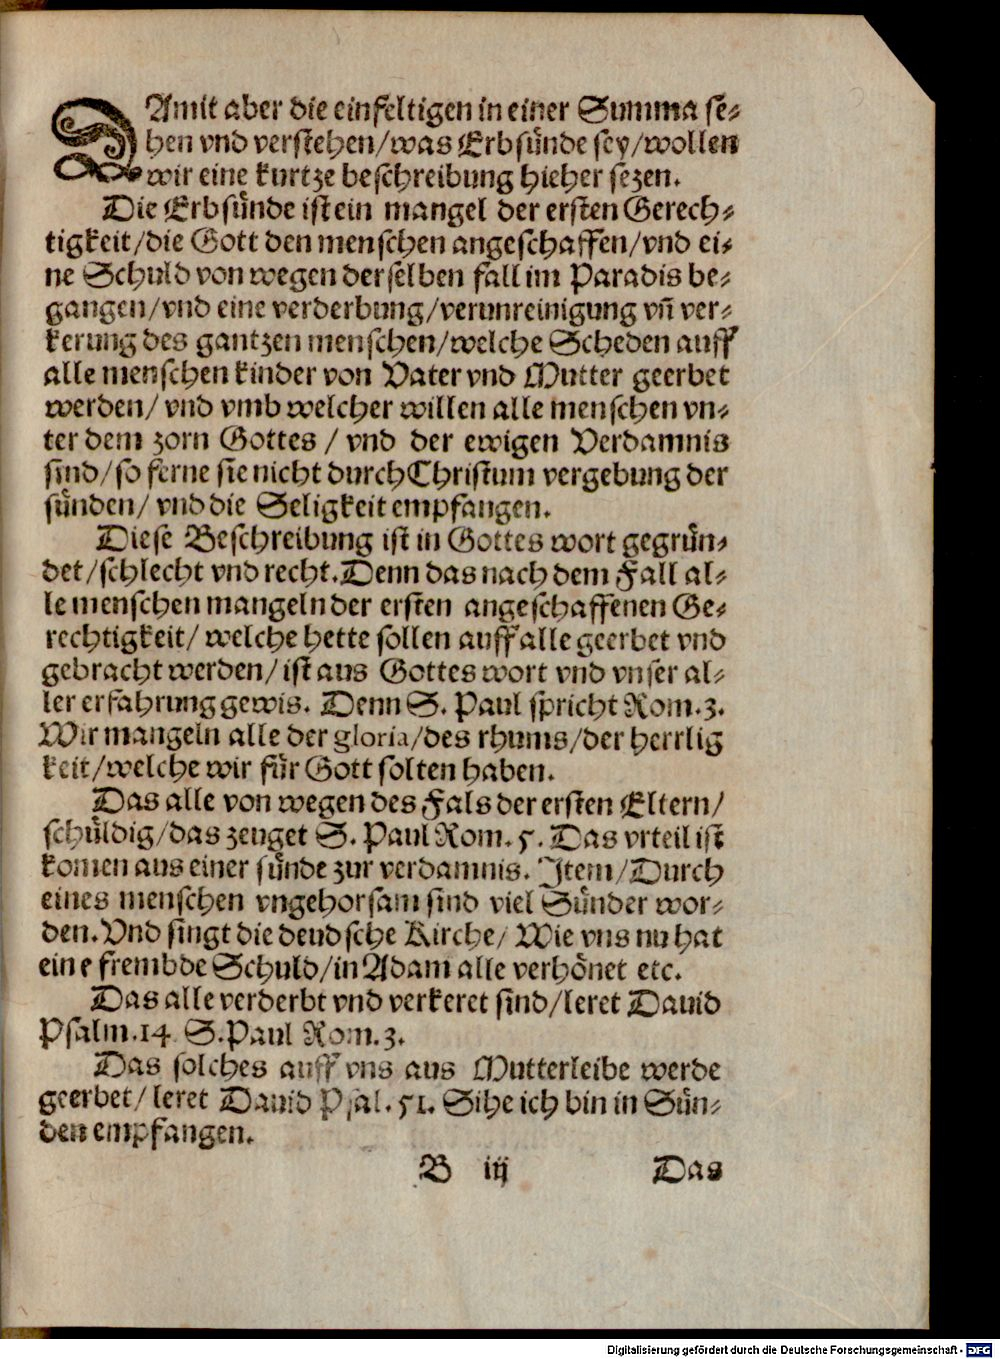 DAmit aber die einfeltigen in einer Summa se⸗
hen vnd verstehen/was Erbsünde sey/wollen
wir eine kurtze beschreibung hieher sezen.
Die Erbsünde ist ein mangel der ersten Gerech⸗
tigkeit/die Gott den menschen angeschaffen/vnd ei⸗
ne Schuld von wegen derselben fall im Paradis be⸗
gangen/vnd eine verderbung/verunreinigung vn̄ ver⸗
kerung des gantzen menschen/welche Scheden auff
alle menschen kinder von Vater vnd Mutter geerbet
werden/ vnd vmb welcher willen alle menschen vn⸗
ter dem zorn Gottes / vnd der ewigen Verdamnis
sind/so ferne sie nicht durch Christum vergebung der
sünden/ vnd die Seligkeit empfangen.
Diese Beschreibung ist in Gottes wort gegrün⸗
det/schlecht vnd recht. Denn das nach dem Fall al⸗
le menschen mangeln der ersten angeschaffenen Ge⸗
rechtigkeit/ welche hette sollen auff alle geerbet vnd
gebracht werden/ ist aus Gottes wort vnd vnser al⸗
ler erfahrung gewis. Denn S. Paul spricht Rom. 3.
Wir mangeln alle der gloria/des rhums/der herrlig
keit/welche wir für Gott solten haben.
Das alle von wegen des Fals der ersten Eltern/
schüldig/das zeuget S. Paul Rom. 5. Das vrteil ist
komen aus einer sünde zur verdamnis. Item/Durch
eines menschen vngehorsam sind viel Sünder wor⸗
den. Vnd singt die deudsche Kirche/ Wie vns nu hat
eine frembde Schuld/in Adam alle verhönet etc.
Das alle verderbt vnd verkeret sind/leret Dauid
Psalm. 14 S. Paul Rom. 3.
Das solches auff vns aus Mutterleibe werde
geerbet/ leret Dauid Psal. 51. Sihe ich bin in Sün⸗
den empfangen.
B iij Das
Digitalisierung gefördert durch die Deutsche Forschungsgemeinschaft - DFG